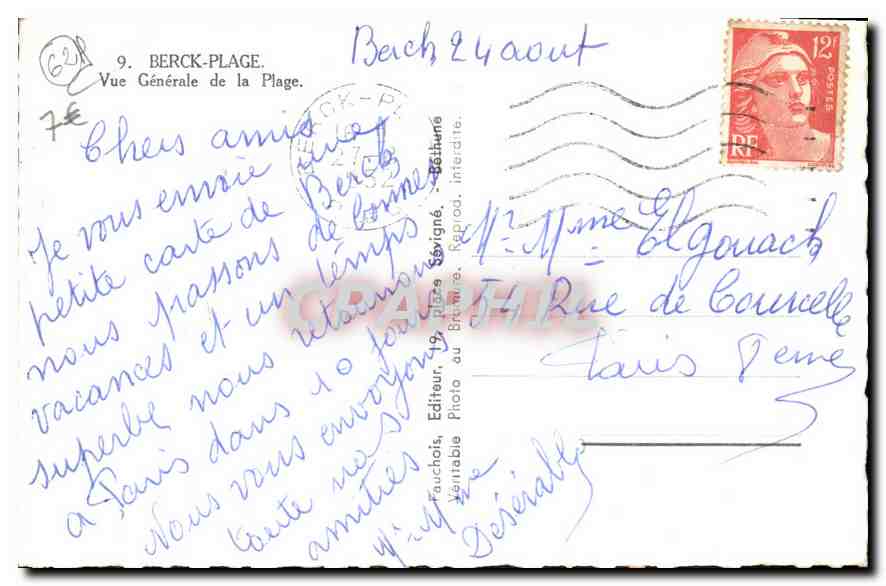 62
9. BERCK-PLAGE.
Vue Générale de la Plage.
7€
Berck 24 aout
12F
POSTES
RF
BERCK-PL
27
52
Chers amis
Je vous envoie une
petite carte de Berck
nous passons de bonnes
vacances et un temps
superbe nous retournons
a Paris dans 10 jours
Nous vous envoyons
toute nos
amitiés
Mr Mme
Desérable
Fauchois, Editeur, 19, place Sévigné. - Béthune
Véritable Photo au Bromure. Reprod. interdite.
CPAPHIL
Mr Mme Elgouach
54 Rue de Courcelle
Paris 8eme